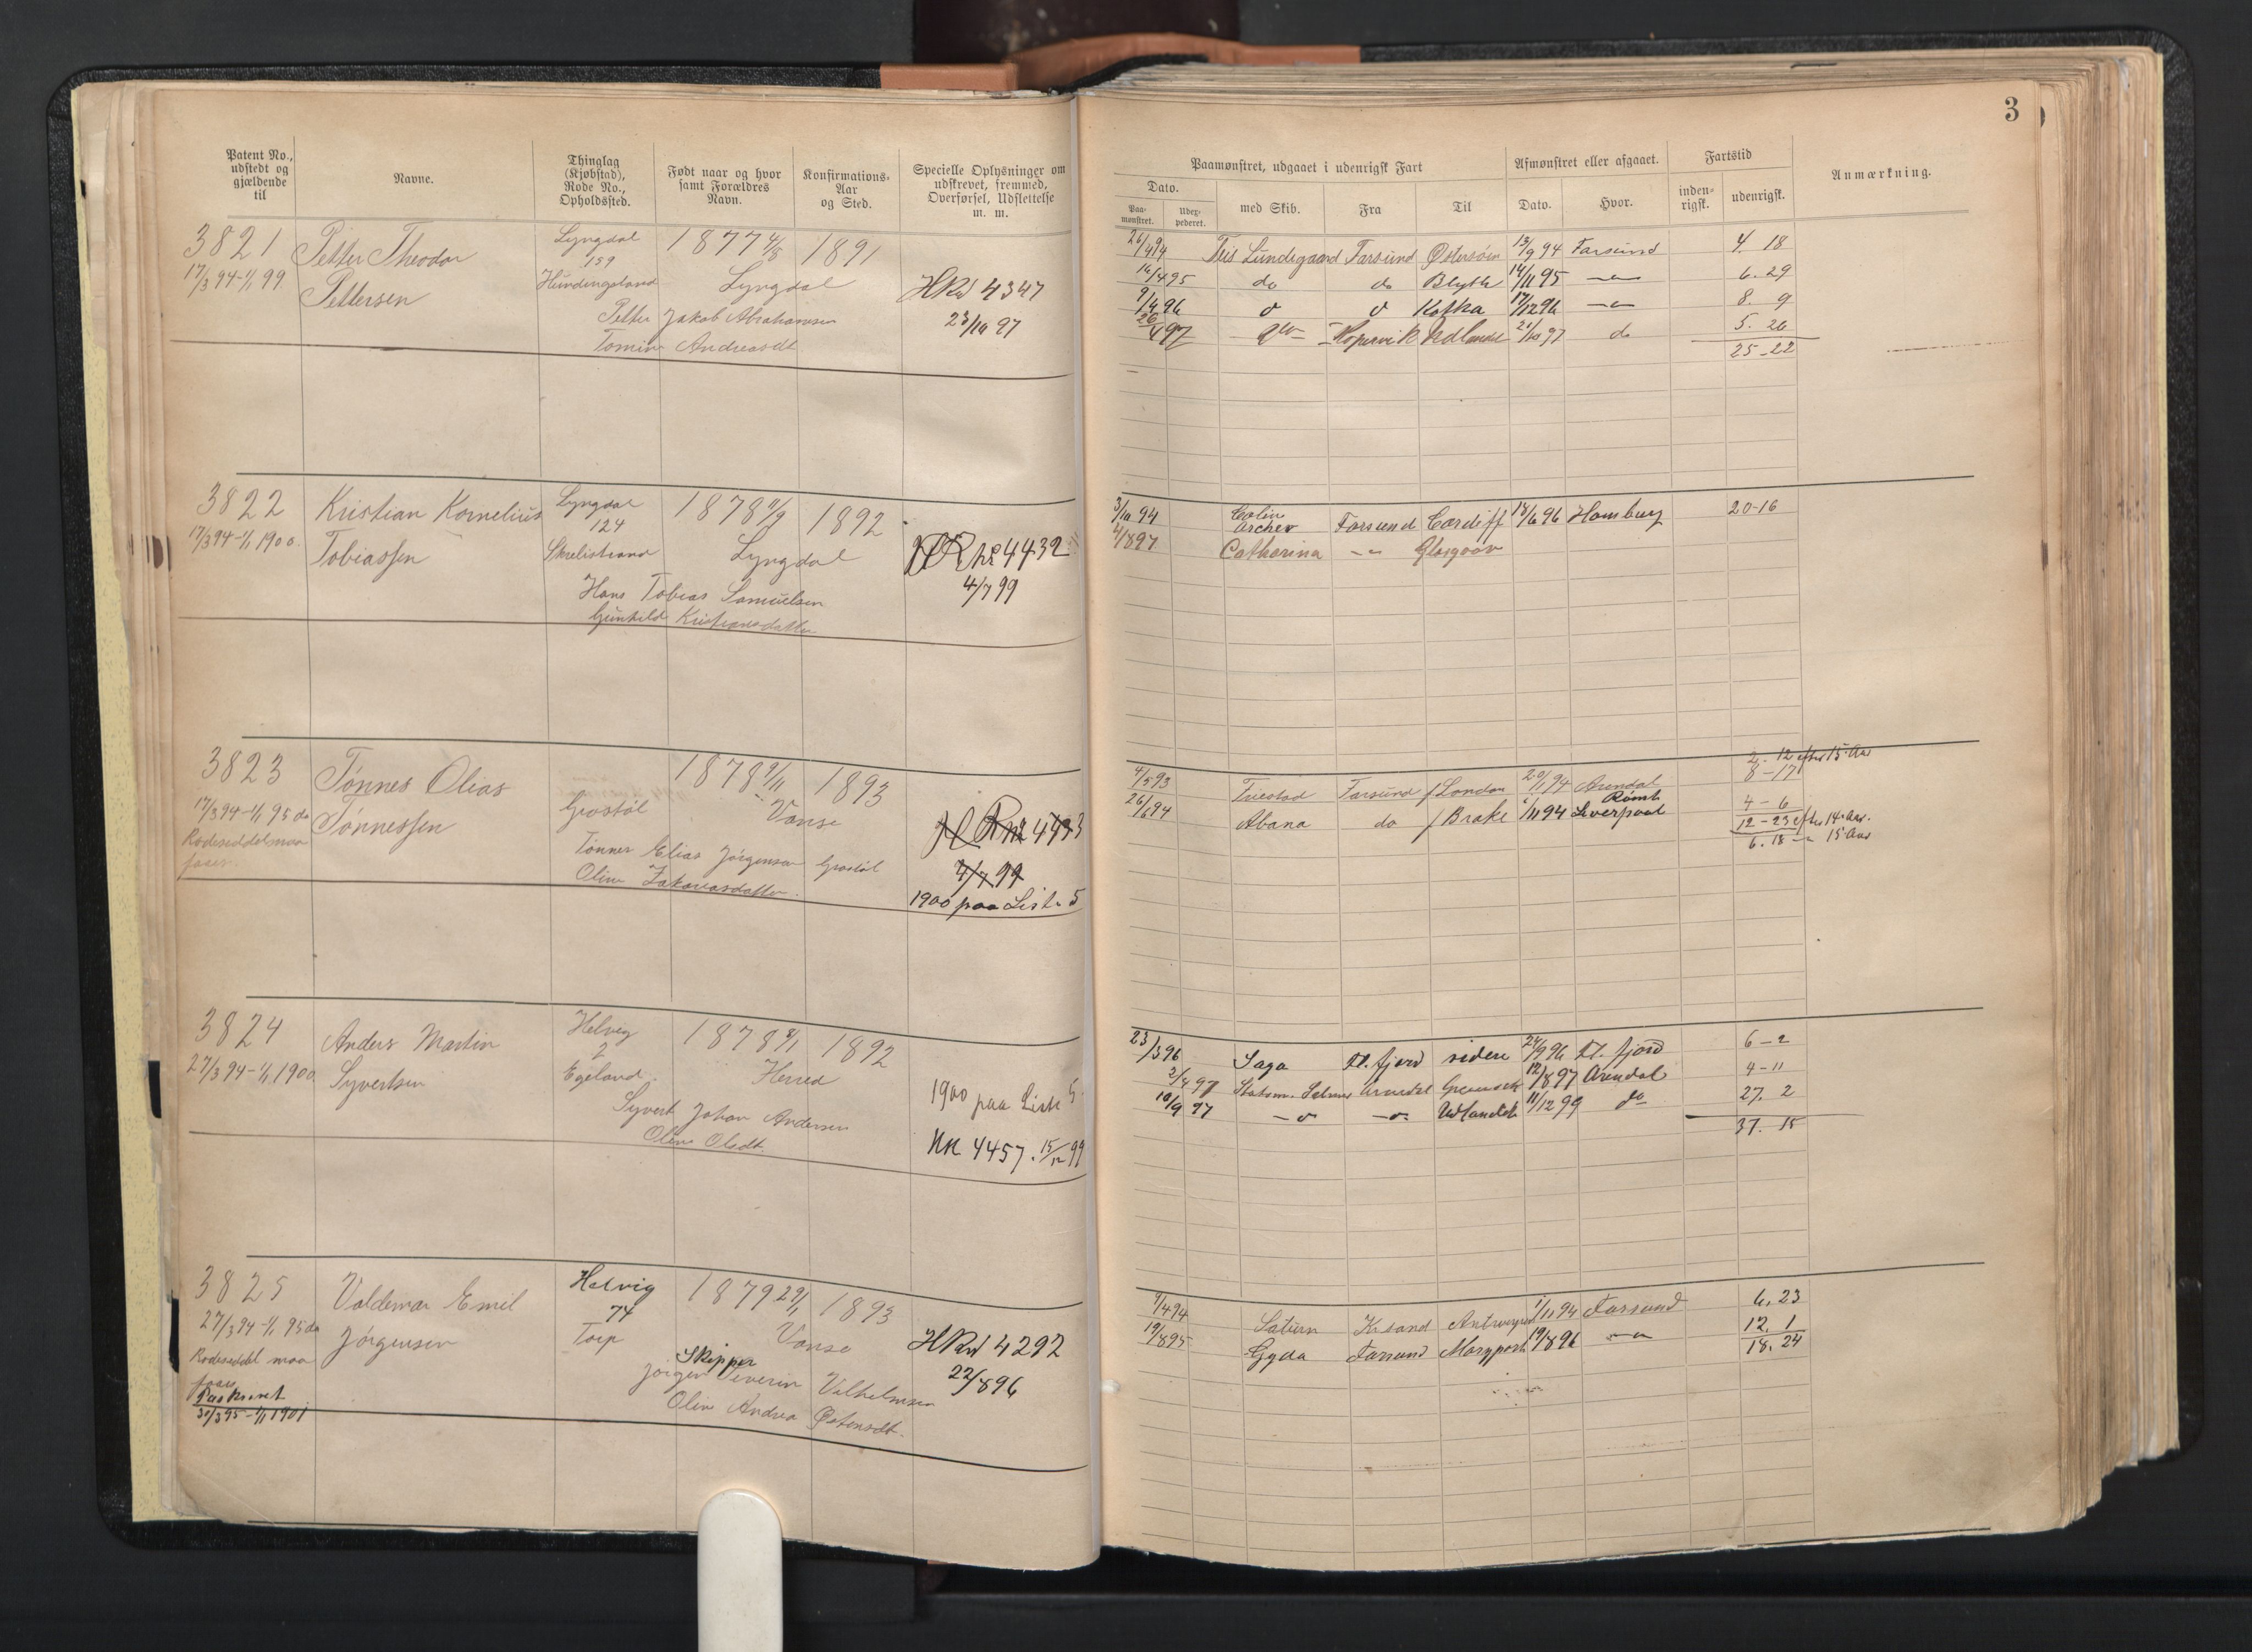 3
Patent No., udstedt og gjældende til
Navne.
Thinglag (Kjøbstad), Rode No., Opholdssted.
Født naar og hvor samt Forældres Navn.
Konfirmations-Aar og Sted.
Specielle Oplysninger om udskrevet, fremmed, Overførsel, Udslettelse m. m.
Paamønstret, udgaaet i udenrigsk Fart
Afmønstret eller afgaaet.
Fartstid
Anmærkning.
Dato.
Paa-mønstret.
Udex-pederet.
med Skib.
Fra
Til
Dato.
Hvor.
inden-rigsk.
udenrigsk.
3821 Petter Theodor Lyngdal 1877 4/8 1891
17/3 94-1/1 99. Pettersen 159 Lyngdal HRul 4347
Petter Jakob Abrahamsen 23/10 97
Tomine Andreasdt
26/4 94 Lundegaard Farsund Østersøen 13/9 94 Farsund 4. 18
16/4 95 do do Blyth 14/11 95 — 6. 29
9/4 96 Kotka 17/12 96 — 8. 9
26/4 97 Kopervik Udlandet 21/10 97 do 5. 26
25-22
3822 Kristian Kornelius Lyngdal 1878 9/9 1892
17/3 94-1/1 1900. Tobiassen 124 Lyngdal HR No 4432
Hans Tobias Samuelsen 4/7 99
Gunhild Kristiansdatter
3/10 94 Colin Archer Farsund Cardiff 18/6 96 Hamburg 20-16
4/8 97 Catharina — Glasgow
3823 Tönnes Olias 1878 9/11 1893
17/3 94-1/1 95 da Tönnessen Grostøl Vanse 4433
Rodeseddel maa faaes.
Tönnes Elias Jörgensen Grostøl 4/7 99
Oline Zakariasdatter. 1900 paa Liste 5
2. 12 efter 15 Aar
4/5 93 Farsund f London 20/1 94 Arendal 8-17
26/6 94 Abana do f Brake 1/11 94 Rømt Liverpool 4-6
12-23 efter 14 Aar.
6. 18 — 15 Aar
3824 Anders Martin Helvig 1878 8/1 1892
27/3 94-1/1 1900 Syvertsen 2 Egeland. Herred
1900 paa Liste 5
Syvert Johan Andersen
Oline Olsdt. 4457. 15/12 99
23/3 96 Saga Fl. fjord videre 24/9 96 Fl. fjord 6-2
2/4 97 Arendal 12/8 97 Arendal 4-11
10/9 97 — — Udlandet 11/12 99 do 27. 2
37. 15
3825 Valdemar Emil Helvig 1879 29/1 1893
27/3 94-1/1 95 da Jörgensen 74 Torp Vanse HRul 4292
Rodeseddel maa faaes
Skipper
Jörgen Severin Vilhelmsen 22/8 96
Oline Andrea Østensdt.
30/3 95-1/1 1901
9/4 94 Saturn Krsand Antwerpen 1/11 94 Farsund 6. 23
19/8 95 Gyda Farsund Maryport 19/8 96 — 12. 1
18. 24